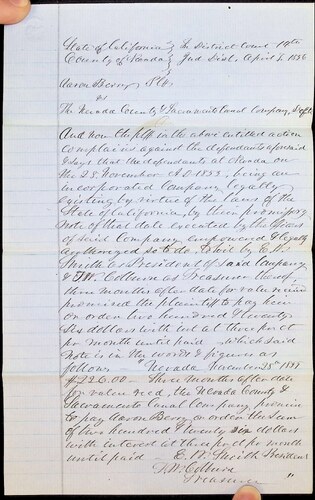 State of California } In District Court 14th
County of Nevada } Jud Dist. April T. 1856
Aaron Berry, Plff
vs
The Nevada County & Sacramento Canal Company, Deft
And now the plff in the above entitled action
complains against the defendants aforesaid
& says that the defendants at Nevada on
the 23 November AD 1855, being an
incorporated Company legally
existing by virtue of the laws of the
State of California, by their promissory
note of that date executed by the officers
of said Company empowered & legally
authorized so to do. To wit by E. W.
Smith as President of said Company
& T. W. Colburn as Treasurer thereof
three months after date for value recd
promised the plaintiff to pay him
or order two hundred & twenty
six dollars with int at three per ct
per month until paid which said
note is in the words & figures as
follows - Nevada November 23rd 1855
$226.00 - Three months after date
for value recd, the Nevada County &
Sacramento Canal Company, promise
to pay Aaron Berry, or order the sum
of two hundred & twenty six dollars
with interest at three per ct per month
until paid - E. W. Smith President
T. W. Colburn
Treasurer "